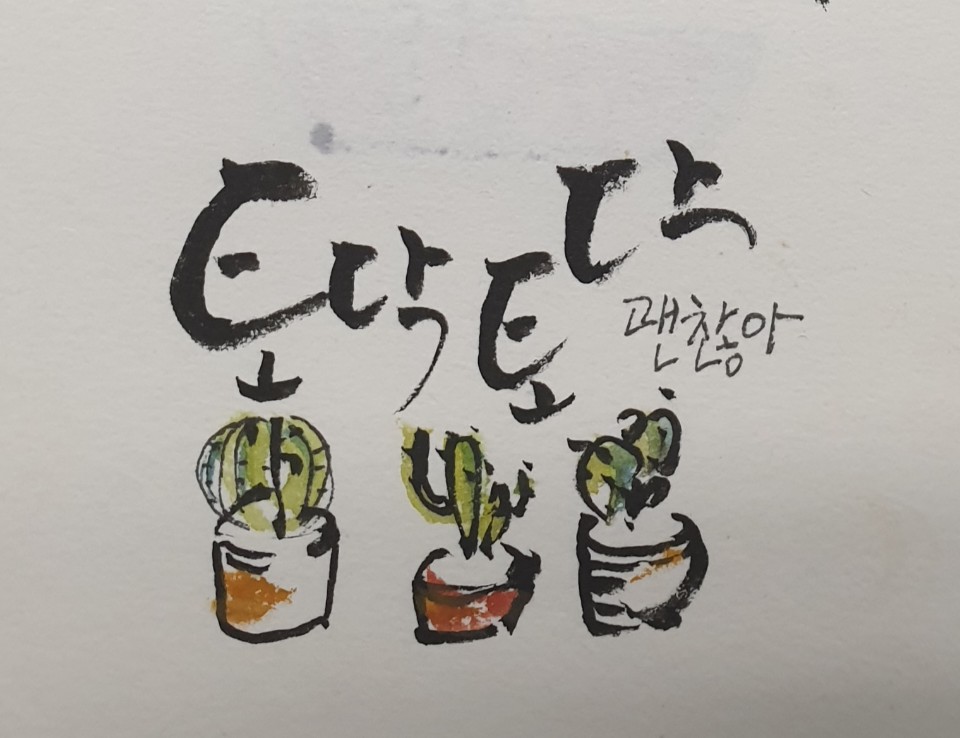 토닥토닥
괜찮아